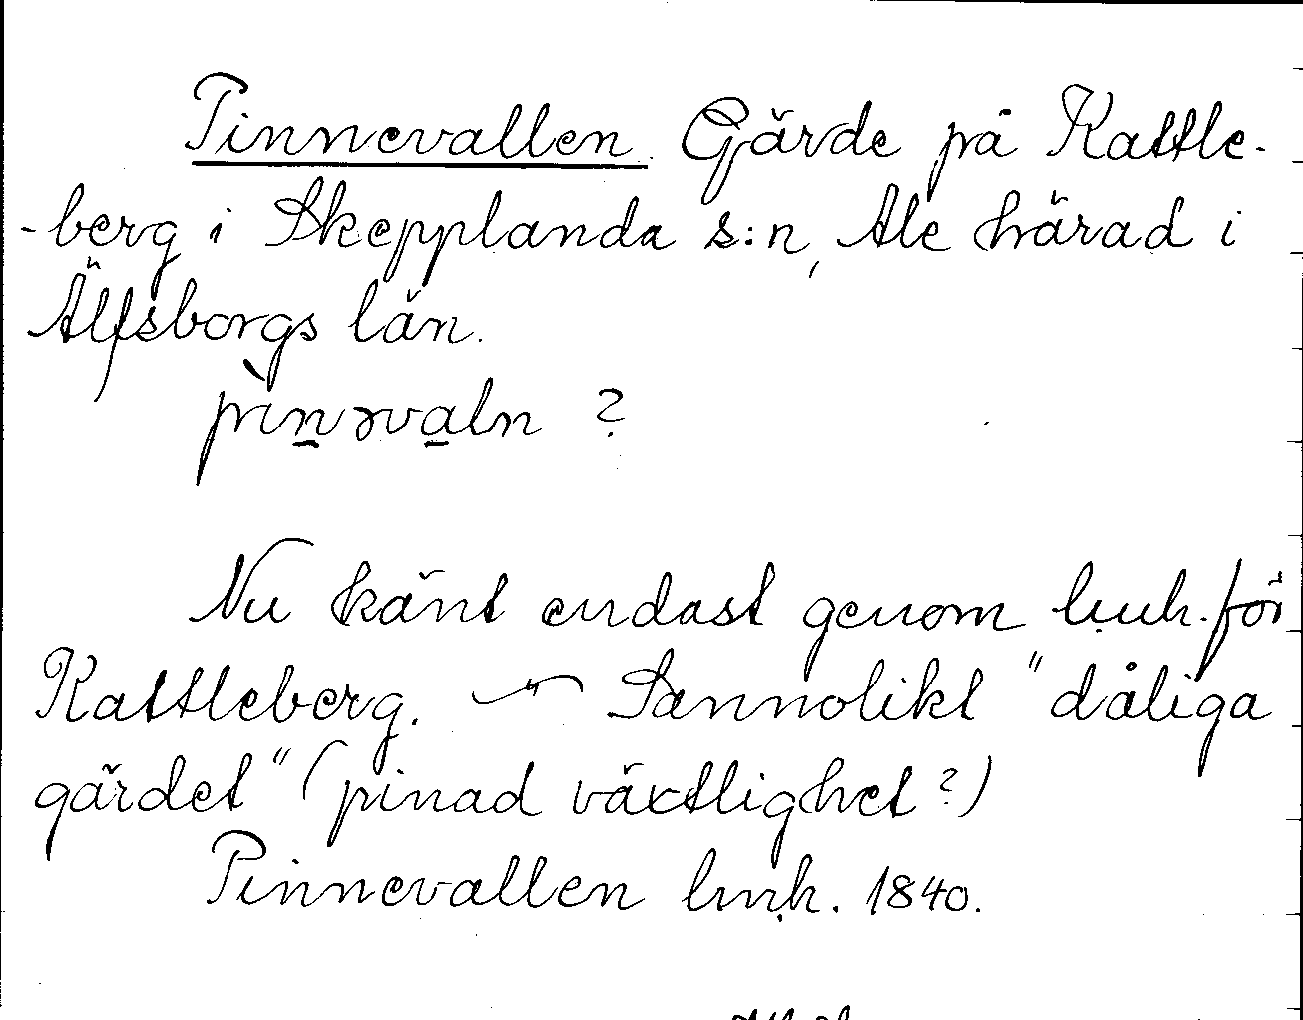 Pinnevallen. Gärde på Kattle-
-berg i Skepplanda s:n, Ale härad i
Älfsborgs län.
pìnəvaln ?
Nu känt endast genom lmh. för
Kattleberg. — Sannolikt "dåliga
gärdet" (pinad växtlighet?)
Pinnevallen lmh. 1840.